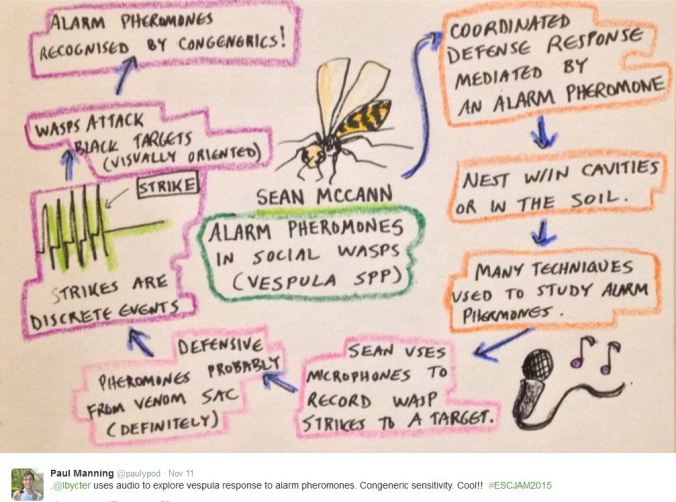 SEAN MCCANN
ALARM PHEROMONES
IN SOCIAL WASPS
(VESPULA SPP)
COORDINATED
DEFENSE RESPONSE
MEDIATED BY
AN ALARM PHEROMONE
NEST W/IN CAVITIES
OR IN THE SOIL.
MANY TECHNIQUES
USED TO STUDY ALARM
PHERMONES.
SEAN USES
MICROPHONES TO
RECORD WASP
STRIKES TO A TARGET.
DEFENSIVE
PHEROMONES PROBABLY
FROM VENOM SAC
(DEFINITELY)
STRIKE
STRIKES ARE
DISCRETE EVENTS
WASPS ATTACK
BLACK TARGETS
(VISUALLY ORIENTED)
ALARM PHEROMONES
RECOGNISED BY CONGENERICS!
Paul Manning @paulypod · Nov 11
.@lbycter uses audio to explore vespula response to alarm pheromones. Congeneric sensitivity. Cool!! #ESCJAM2015